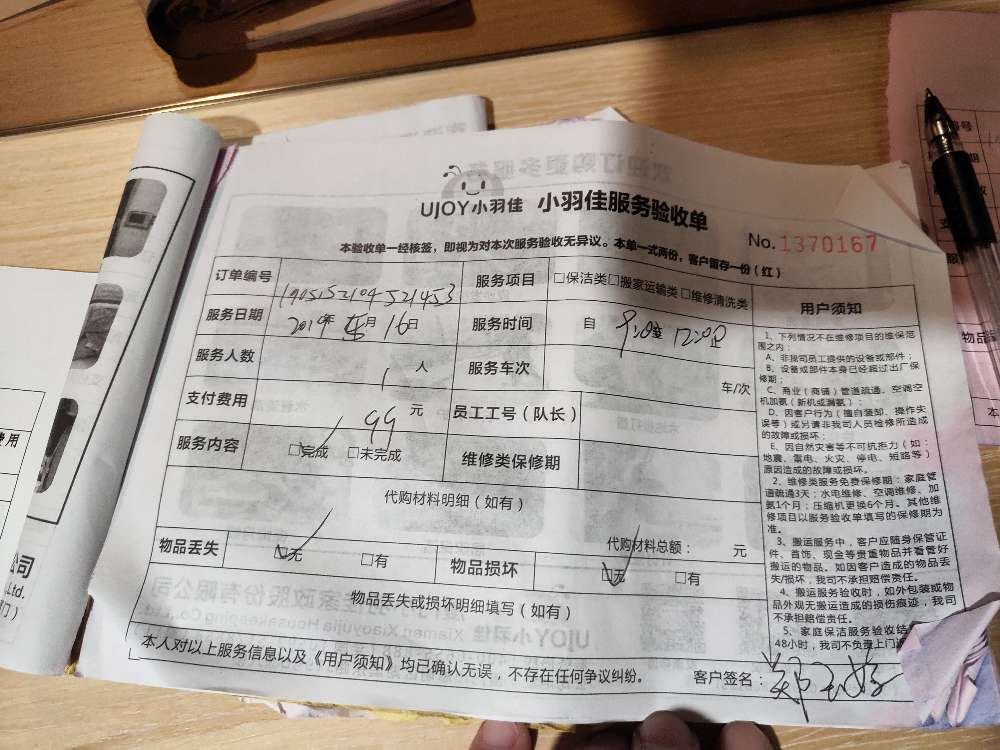 UJOY小羽佳 小羽佳服务验收单
No. 1370167
本验收单一经核签，即视为对本次服务验收无异议。本单一式两份，客户留存一份（红）
订单编号 1905152104521453 服务项目 □保洁类□搬家运输类 □维修清洗类
服务日期 2019年 5月 16日 服务时间 自 9:00至 12:00止
服务人数 1 人 服务车次 车/次
支付费用 99 元 员工工号（队长）
服务内容 □完成 □未完成 维修类保修期
代购材料明细（如有）
代购材料总额： 元
物品丢失 □无 □有 物品损坏 □无 □有
物品丢失或损坏明细填写（如有）
本人对以上服务信息以及《用户须知》均已确认无误，不存在任何争议纠纷。
客户签名：
用户须知
1、下列情况不在维修项目的维保范
围之内：
A、非我司员工提供的设备或部件；
B、设备或部件本身已经超过出厂保
修期；
C、商业（商铺）管道疏通、空调空
机加氟（新机或漏氟）；
D、因客户行为（擅自装卸、操作失
误等）或另请非我司人员检修所造成
的故障或损坏；
E、因自然灾害等不可抗拒力（如：
地震、雷电、火灾、停电、短路等）
原因造成的故障或损坏。
2、维修类服务免费保修期：家庭管
道疏通3天；水电维修、空调维修、加
氨1个月；压缩机更换6个月。其他维
修项目以服务验收单填写的保修期为
准。
3、搬运服务中，客户应随身保管证
件、首饰、现金等贵重物品并看管好
搬运的物品。如因客户造成的物品丢
失/损坏，我司不承担赔偿责任。
4、搬运服务验收时，如外包装或物
品外观无搬运造成的损伤痕迹，我司
不承担赔偿责任。
5、家庭保洁服务验收结
48小时，我司不负责上门
公司
Ltd.
门）
使用
编号
物品